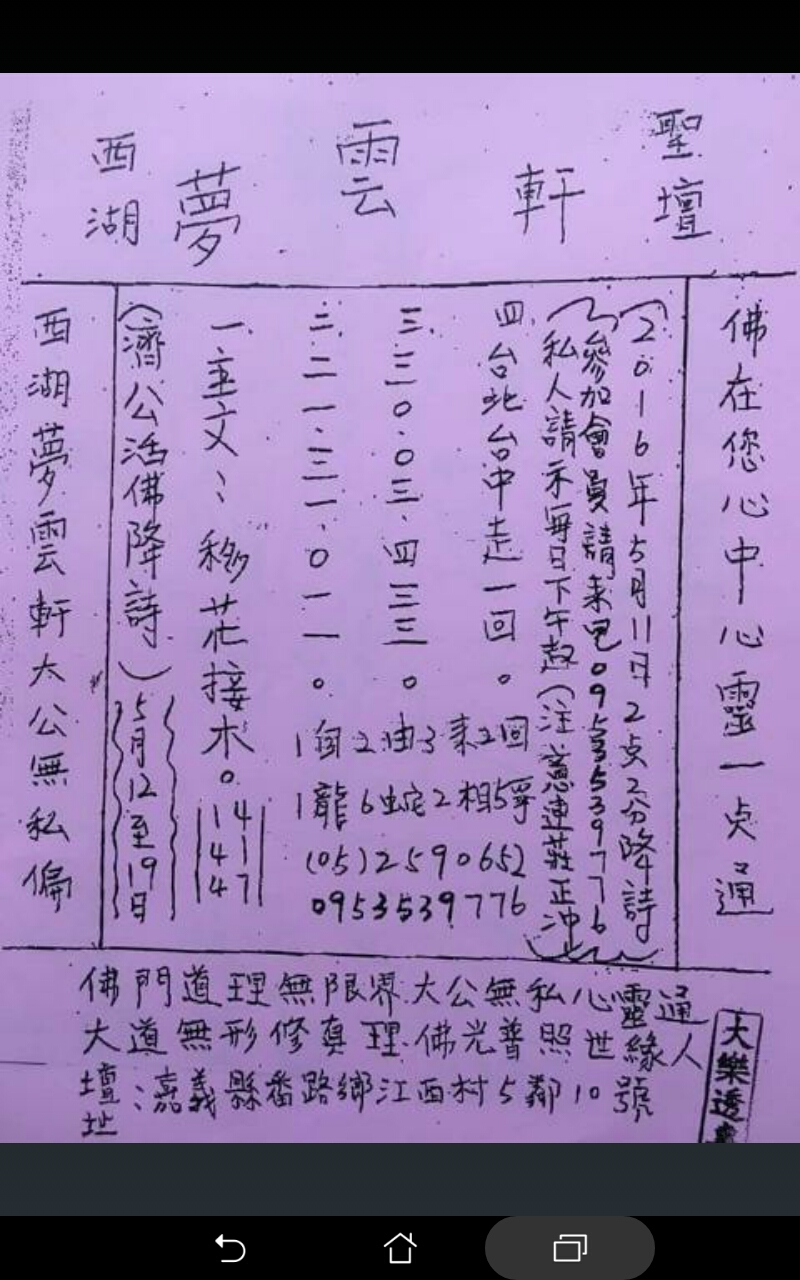 西湖 夢 雲 軒 聖壇
佛在您心中心靈一点通
(2016年5月11日2点2分降詩
參加會員請來电0953539776
私人請示每日下午起(注意連莊正沖
四、台北台中走一回。
三、三〇.〇三.四三三。
二、二一.三一.〇一一。
一、主文:移花接木。
14
41
47
1自2由3來2回
1龍6蛇2相5爭
(05)2590652
0953539776
(濟公活佛降詩)
5月12至19日
西湖夢雲軒大公無私偏
佛門道理無限界.大公無私心靈通
大道無形修真理.佛光普照世緣人
壇址:嘉義縣番路鄉江西村5鄰10號
大樂透